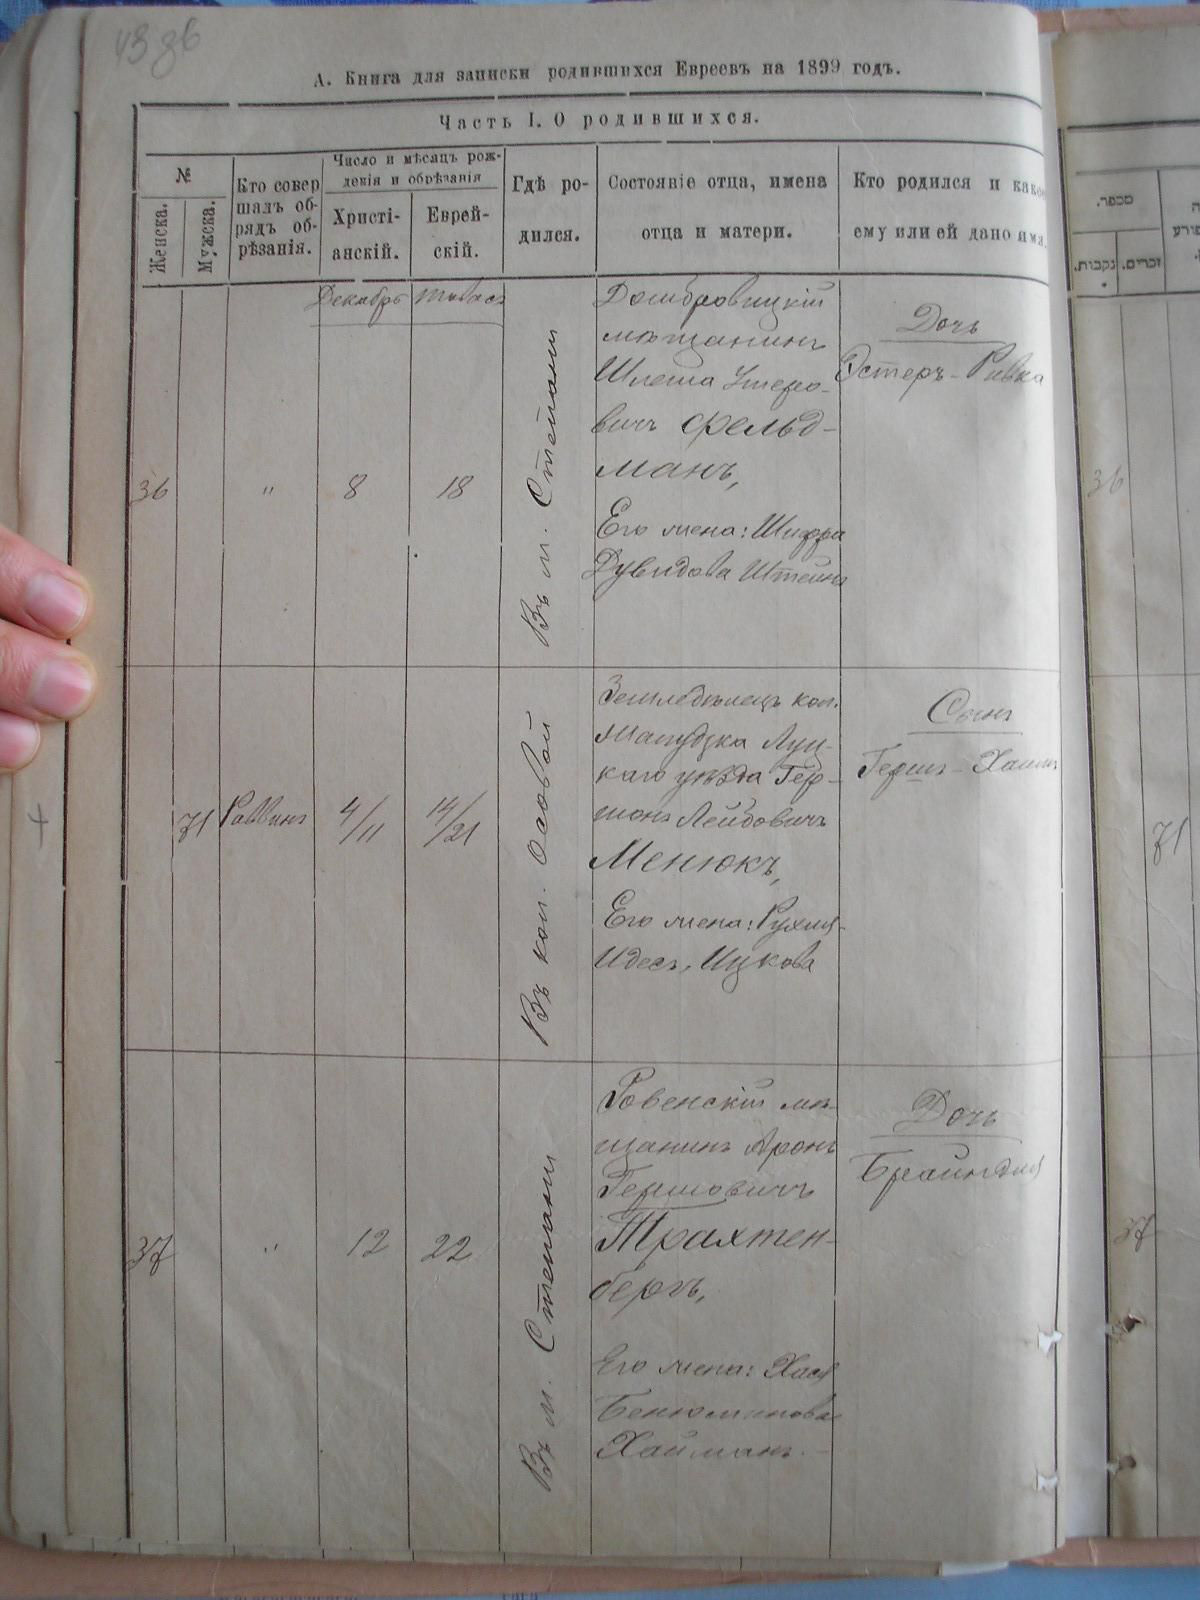 А. Книга для записки родившихся Евреевъ на 1899 годъ.
Часть I. О родившихся.
№
Женска.
Мужска.
Кто совер
шалъ об-
рядъ об-
рѣзанія.
Число и мѣсяцъ рож-
денія и обрѣзанія
Христі-
анскій.
Еврей-
скій.
Гдѣ ро-
дился.
Состояніе отца, имена
отца и матери.
Кто родился и какое
ему или ей дано имя.
Декабрь
36
"
8
18
Въ м. Степани
Домбровицкій
мѣщанинъ
Шлема
вичъ Фельд-
манъ,
Его жена: Шифра
Дувидова Штейнъ
Дочь
Эстеръ-Ривка
71
Раввинъ
4/11
14/21
Въ кол. Осовой
Земледѣлецъ кол.
Луц-
каго уѣзда Гер-
шонъ Лейбовичъ
Менюкъ,
Его жена: Рухля-
Идесъ Ицкова
Сынъ
Гершъ-Хаимъ
37
"
12
22
Въ м. Степани
Ровенскій мѣ-
щанинъ Аронъ
Гершовичъ
Трахтен-
бергъ,
Его жена: Хася
Бенюминова
Хайманъ.
Дочь
Брайндля
מספר.
נקבות.
זכרים.
36
71
37